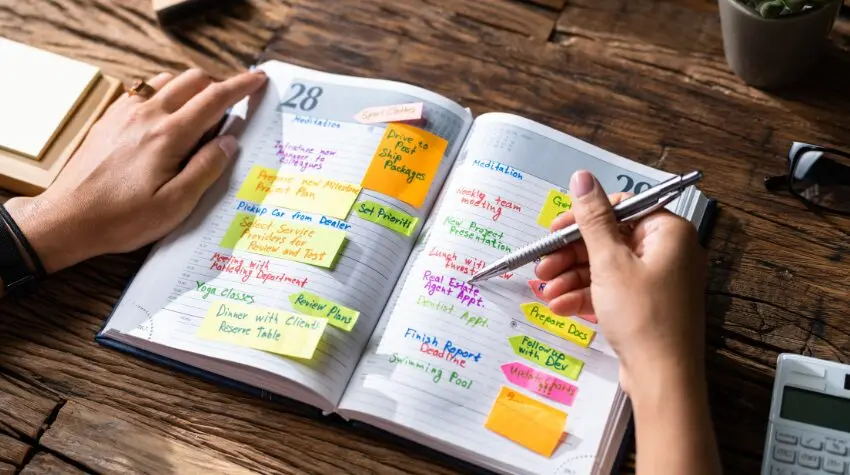 28
Meditation
Sport Clothes
Introduce new
Manager to
Colleagues
Drive to
Post
Ship
Packages
Prepare new Milestone
Project Plan
Set Prioriti
Pickup Car from Dealer
Select Service
Providers for
Review and Test
Meeting with
Marketing Department
Yoga Classes
Review Plans
Dinner with Clients
Reserve Table
29
Meditation
Weekly team
meeting
Get
New Project
Presentation
Lunch with
Real Estate
Agent Appt.
Dentist Appt.
Prepare Docs
Finish Report
Deadline
Follow up
with Dev
Swimming Pool